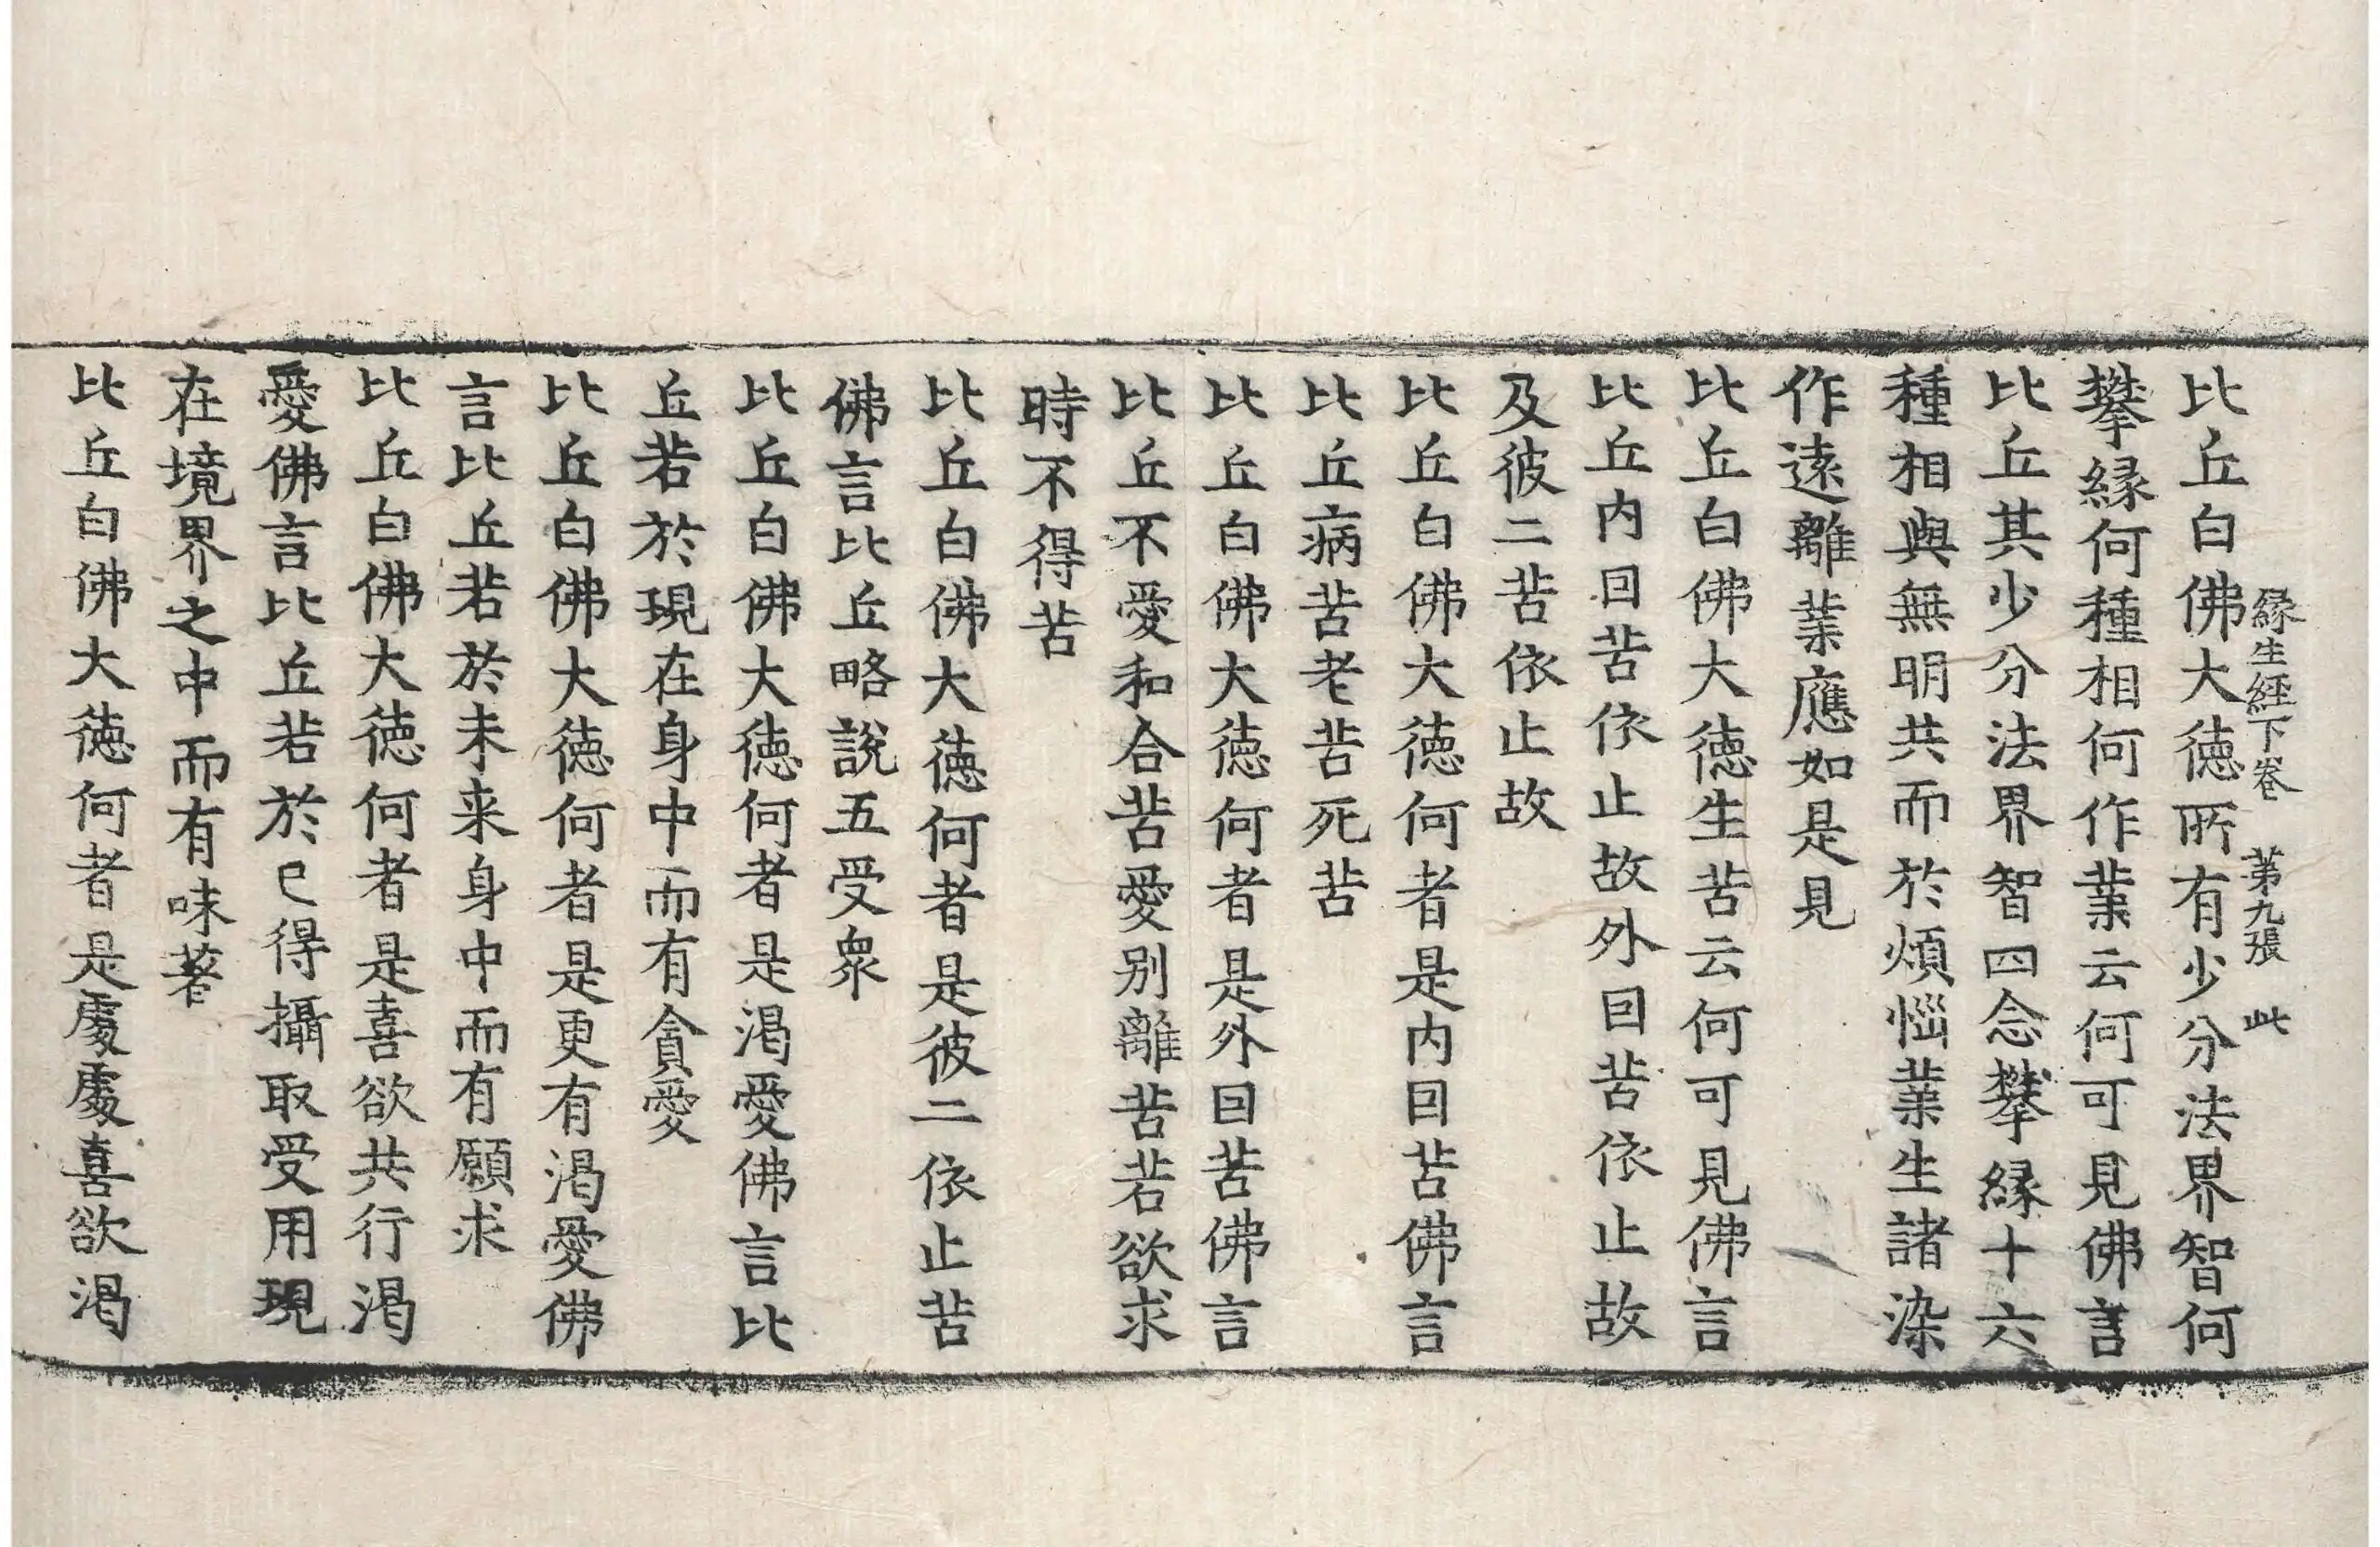 緣生經下卷 第九張 此
比丘白佛大德所有少分法界智何
攀緣何種相何作業云何可見佛言
比丘其少分法界智四念攀緣十六
種相與無明共而於煩惱業生諸染
作遠離業應如是見
比丘白佛大德生苦云何可見佛言
比丘內因苦依止故外因苦依止故
及彼二苦依止故
比丘白佛大德何者是內因苦佛言
比丘病苦老苦死苦
比丘白佛大德何者是外因苦佛言
比丘不愛和合苦愛別離苦若欲求
時不得苦
比丘白佛大德何者是彼二依止苦
佛言比丘略說五受眾
比丘白佛大德何者是渴愛佛言比
丘若於現在身中而有貪愛
比丘白佛大德何者是更有渴愛佛
言比丘若於未来身中而有願求
比丘白佛大德何者是喜欲共行渴
愛佛言比丘若於已得攝取受用現
在境界之中而有味著
比丘白佛大德何者是處處喜欲渴